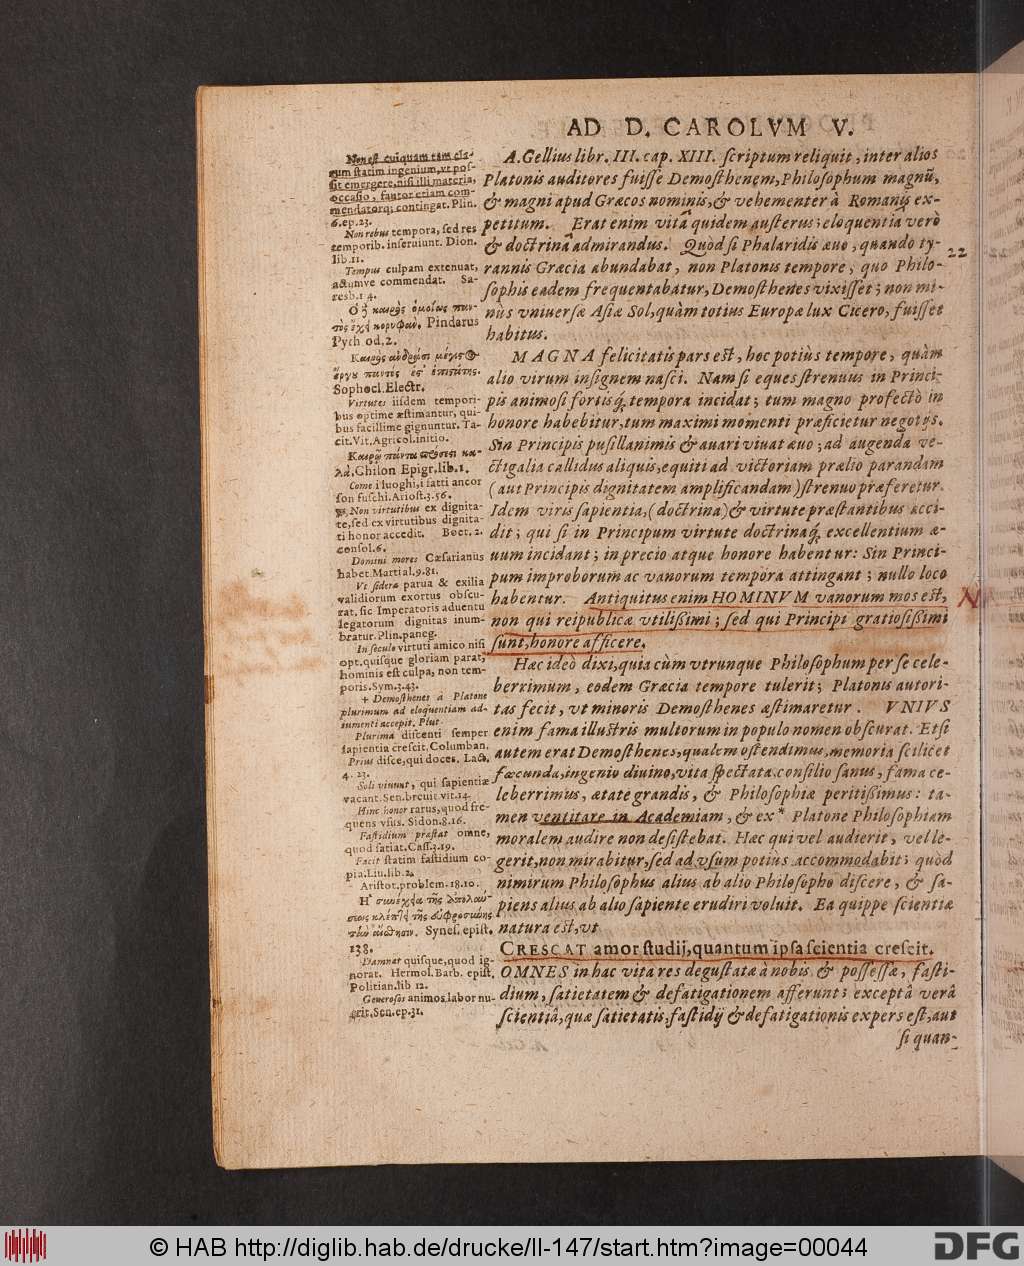 AD D. CAROLVM V.
A. Gellius libr. III. cap. XIII. scriptum reliquit, inter alios
Platonis auditores fuisse Demosthenem, Philosophum magnũ,
& magni apud Græcos nominis, & vehementer à Romanis ex-
petitum. Erat enim vitâ quidem austerus; eloquentia verò
& doctrinâ admirandus. Quòd si Phalaridis æuo, quando ty-
rannis Græcia abundabat, non Platonis tempore, quo Philo-
sophis eadem frequentabatur, Demosthenes vixisset; non mi-
nùs vniuersæ Asiæ Sol, quàm totius Europæ lux Cicero, fuisset
habitus.
MAGNA felicitatis pars est, hoc potiùs tempore, quàm
alio virum insignem nasci. Nam si eques strenuus in Princi-
pis animosi fortisq́; tempora incidat; tum magno profectò in
honore habebitur, tum maximi momenti præficietur negotijs.
Sin Principis pusillanimis & auari viuat æuo; ad augenda ve-
ctigalia callidus aliquis, equiti ad victoriam prælio parandam
(aut Principis dignitatem amplificandam) strenuo præferetur.
Idem viris sapientia, (doctrina) & virtute præstantibus acci-
dit; qui si in Principum virtute doctrinaq́; excellentium æ-
uum incidant; in precio atque honore habentur: Sin Princi-
pum improborum ac vanorum tempora attingant; nullo loco
habentur. Antiquitus enim HOMINVM vanorum mos est,
non qui reipublicæ vtilissimi; sed qui Principi gratiosissimi
sunt, honore afficere.
Hæc ideò dixi, quia cùm vtrunque Philosophum per se cele-
berrimum, eodem Græcia tempore tulerit; Platonis autori-
tas fecit, vt minoris Demosthenes æstimaretur. VNIVS
enim fama illustris multorum in populo nomen obscurat. Etsi
autem erat Demosthenes, qualem ostendimus, memoria scilicet
fœcunda, ingenio diuino, vita spectata, consilio sanus, fama ce-
leberrimus, ætate grandis, & Philosophiæ peritissimus: ta-
men ventitare in Academiam, & ex* Platone Philosophiam
moralem audire non desistebat. Hæc qui vel audierit, vel le-
gerit, non mirabitur, sed ad vsum potiùs accommodabit; quòd
nimirum Philosophus alius ab alio Philosopho discere, & sa-
piens alius ab alio sapiente erudiri voluit. Ea quippe scientiæ
natura est, vt
CRESCAT amor studij, quantum ipsa scientia crescit.
OMNES in hac vita res degustatæ à nobis & possessæ, fasti-
dium, satietatem & defatigationem afferunt; exceptâ verâ
scientiâ, quæ satietatis, fastidij & defatigationis expers est, aut
si quan-
22
Non est cuiquam tam cla-
rum statim ingenium, vt pos-
sit emergere, nisi illi materia,
occasio, fautor etiam com-
mendatorq; contingat. Plin.
6. ep. 23.
Non rebus tempora, sed res
temporib. inseruiunt. Dion.
lib. 11.
Tempus culpam extenuat,
actumve commendat. Sa-
resb. 1 4.
Pindarus
Pyth od. 2.
Sophocl. Electr.
Virtutes iisdem tempori-
bus optimè æstimantur, qui-
bus facillime gignuntur. Ta-
cit. Vit. Agricol. initio.
Chilon Epigr. lib. 1.
Come i luoghi, i fatti ancor
son fuschi. Ariost. 3. 56.
Non virtutibus ex dignita-
te, sed ex virtutibus dignita-
ti honor accedit. Boet. 2.
consol. 6.
Domini mores Cæsarianus
habet. Martial. 9. 81.
Vt sidera parua & exilia
validiorum exortus obscu-
rat, sic Imperatoris aduentu
legatorum dignitas inum-
bratur. Plin. paneg.
In seculo virtuti amico nisi
opt. quisque gloriam parat,
hominis est culpa, non tem-
poris. Sym. 3. 43.
+ Demosthenes à Platone
plurimum ad eloquentiam ad-
iumenti accepit. Plut
Plurima discenti semper
sapientia crescit. Columban.
Prius disce, qui doces. Lact.
4. 23.
Soli viuunt, qui sapientiæ
vacant. Sen. breuit. vit. 14.
Hinc honor rarus, quod fre-
quens vsus. Sidon. 8. 16.
Fastidium præstat omne,
quod satiat. Cass. 3. 19.
Facit statim fastidium co-
pia. Liu. lib. 2.
Aristot. problem. 18. 10.
Synes. epist.
138.
Damnat quisque, quod ig-
norat. Hermol. Barb. epist.
Politian. lib 12.
Generosos animos labor nu-
trit. Sen. ep. 31.
© HAB http://diglib.hab.de/drucke/ll-147/start.htm?image=00044
DFG